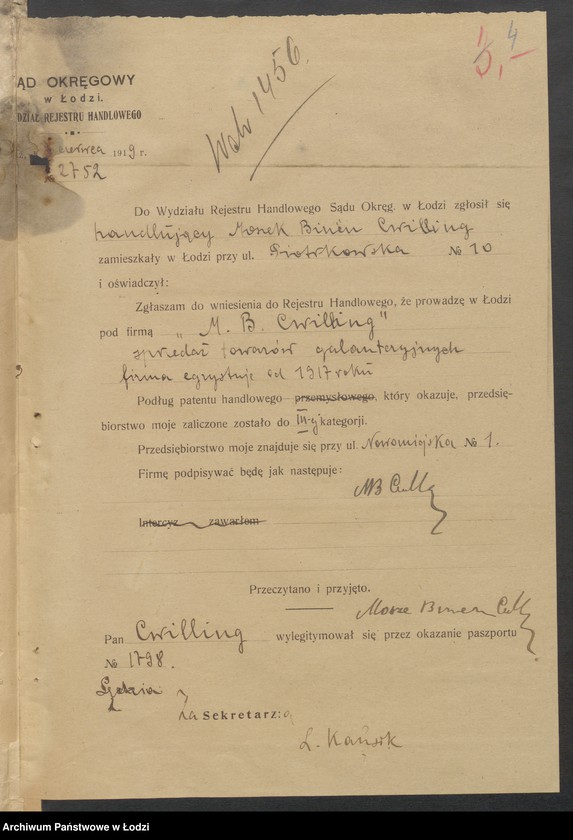 1 4
5,-
1456.
ĄD OKRĘGOWY
w Łodzi.
DZIAŁ REJESTRU HANDLOWEGO
czerwca 1919 r.
2752
Do Wydziału Rejestru Handlowego Sądu Okręg. w Łodzi zgłosił się
handlujący Moszek Binen Cwilling
zamieszkały w Łodzi przy ul. Piotrkowska № 10
i oświadczył:
Zgłaszam do wniesienia do Rejestru Handlowego, że prowadzę w Łodzi
pod firmą „M. B. Cwilling"
sprzedaż towarów galanteryjnych
firma egzystuje od 1917 roku
Podług patentu handlowego przemysłowego, który okazuje, przedsię-
biorstwo moje zaliczone zostało do III-ej kategorji.
Przedsiębiorstwo moje znajduje się przy ul. Nowomiejska № 1.
Firmę podpisywać będę jak następuje:
MB
Intercyz zawarłem
Przeczytano i przyjęto.
Binen
Pan Cwilling wylegitymował się przez okazanie paszportu
№ 1798.
Sędzia
za Sekretarz:a
L.
Archiwum Państwowe w Łodzi Archiwum Państwowe w Łodzi